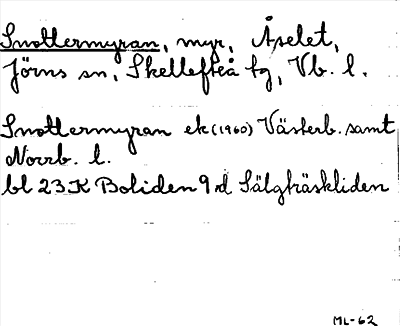 Snottermyran, myr, Åselet,
Jörns sn, Skellefteå tg, Vb. l.
Snottermyran ek (1960) Västerb. samt
Norrb. l.
bl 23 K Boliden 9 d Sälgträskliden
ML-62